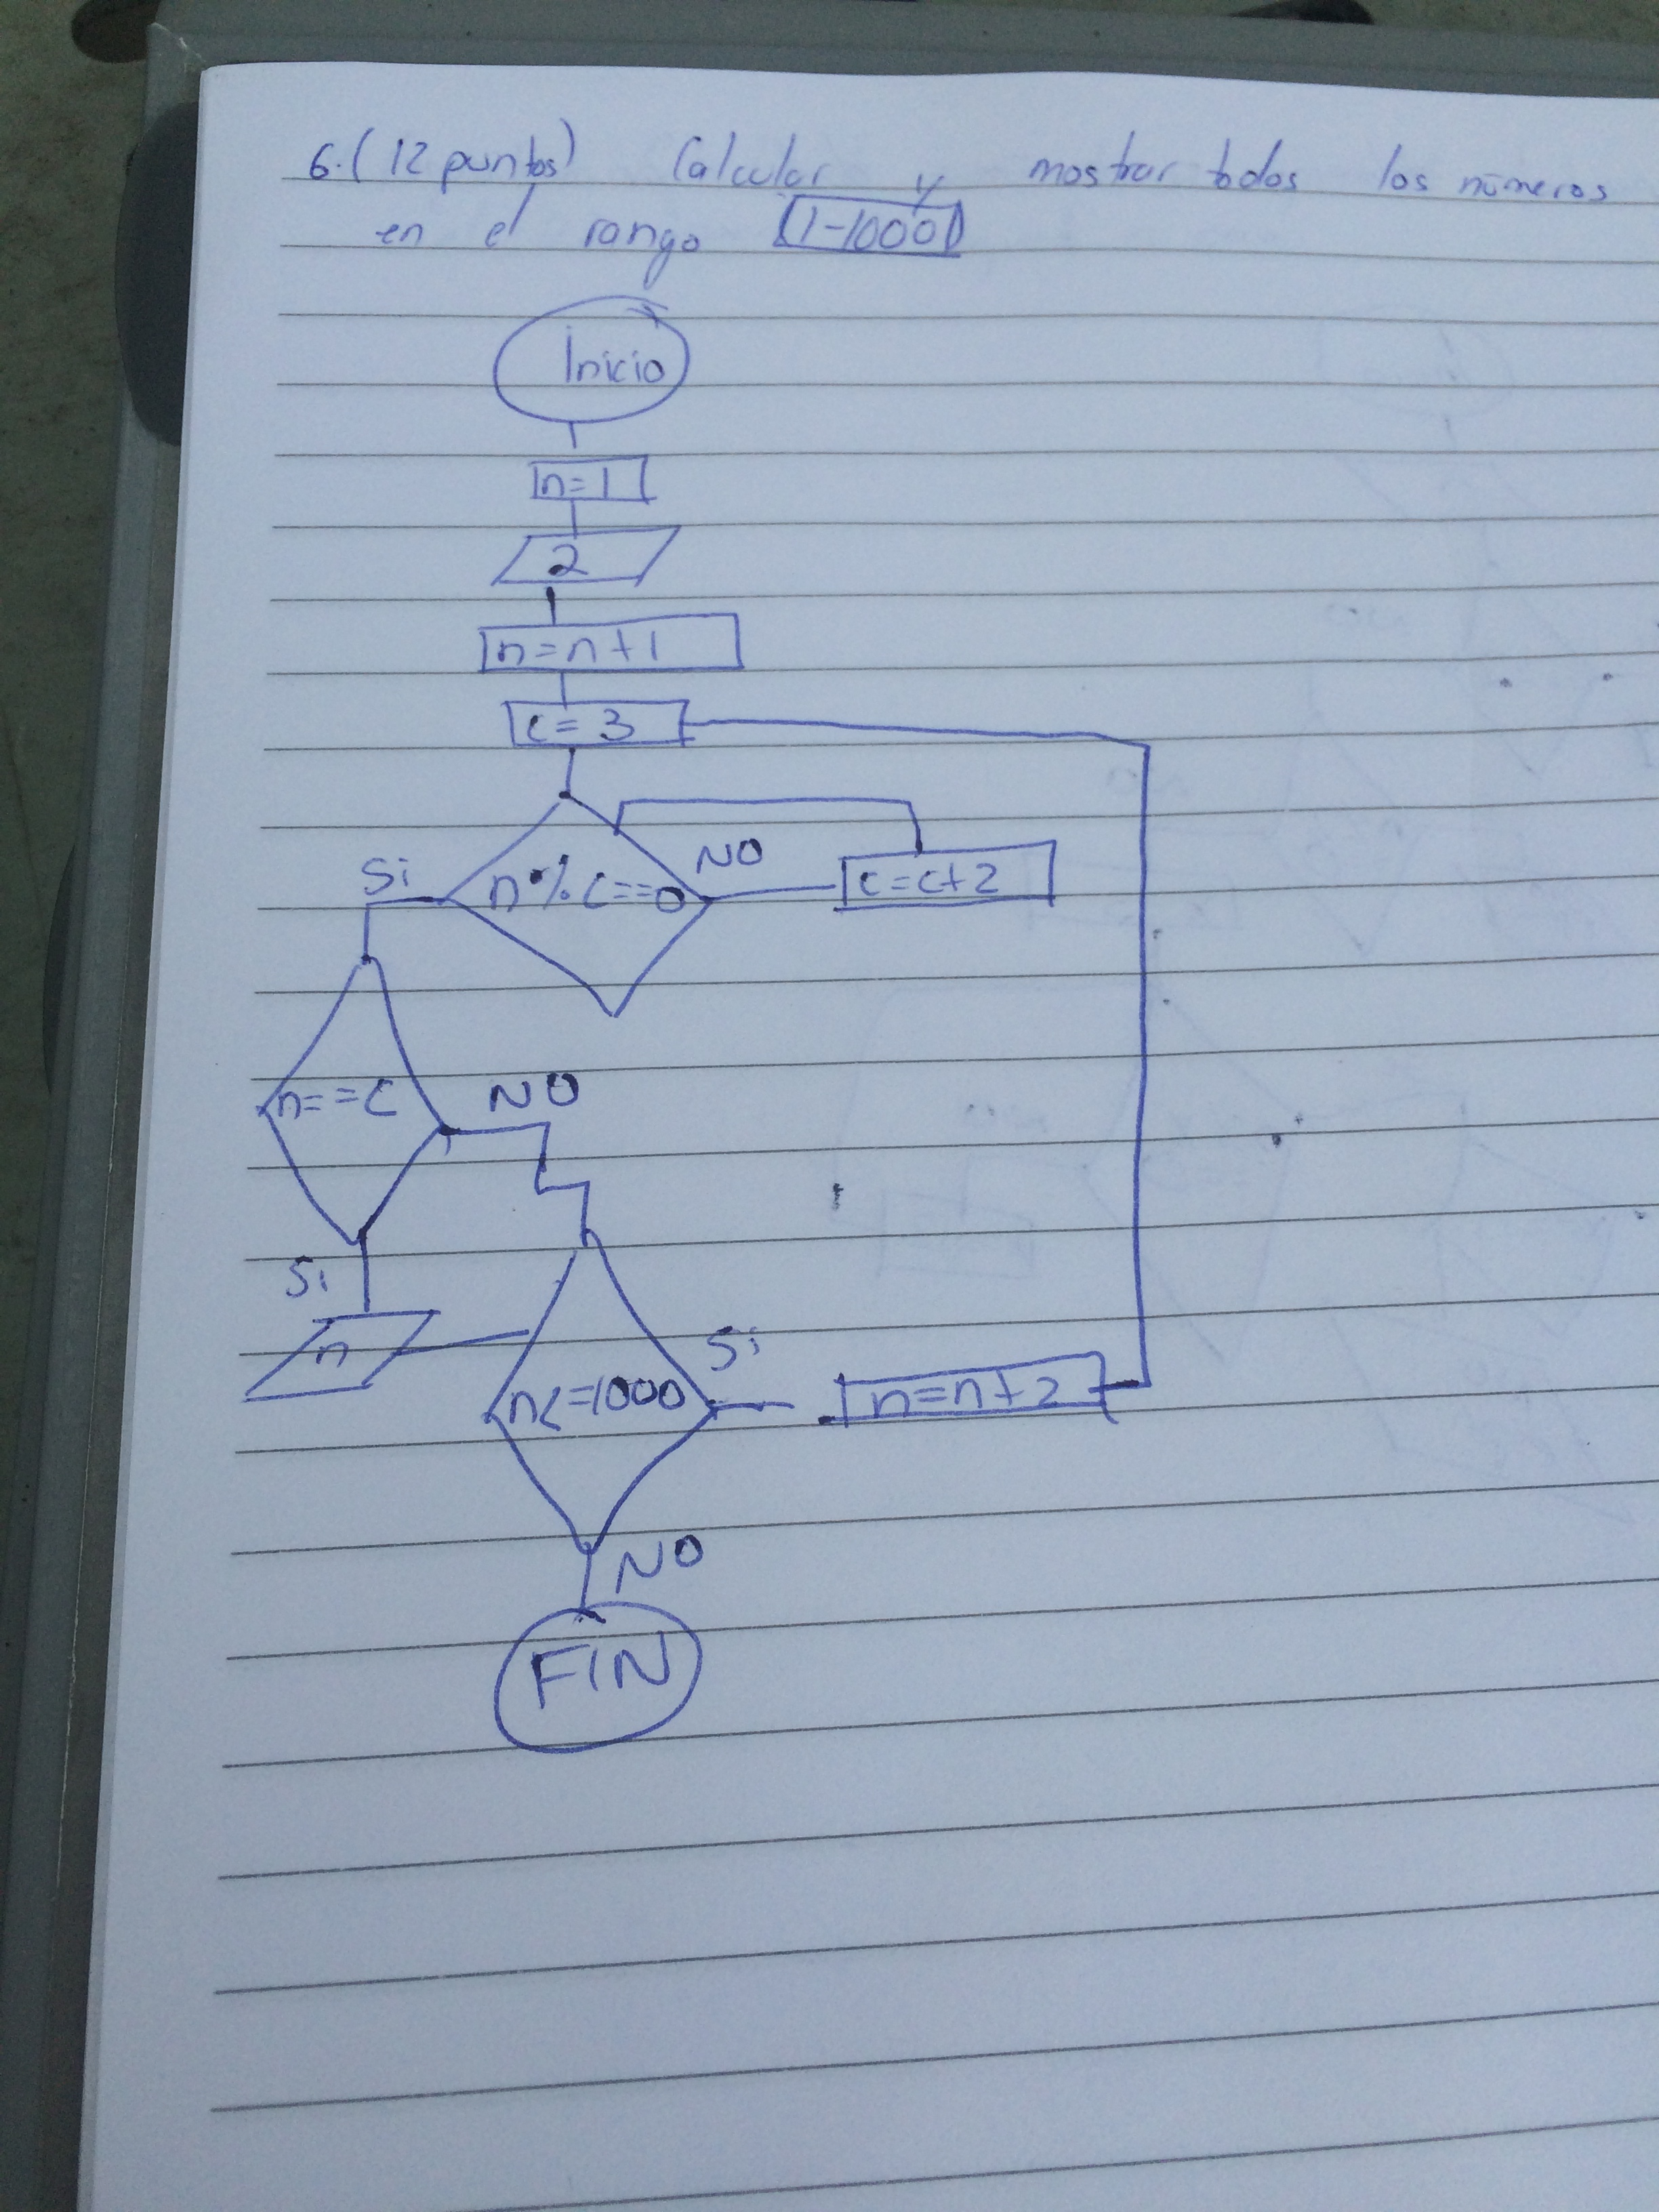 6. (12 puntos) Calcular y mostrar todos los números
en el rango (1-1000)
Inicio
n=1
2
n=n+1
c=3
Si n%c==0 NO c=c+2
n==c NO
Si
n Si
n<=1000 n=n+2
NO
FIN